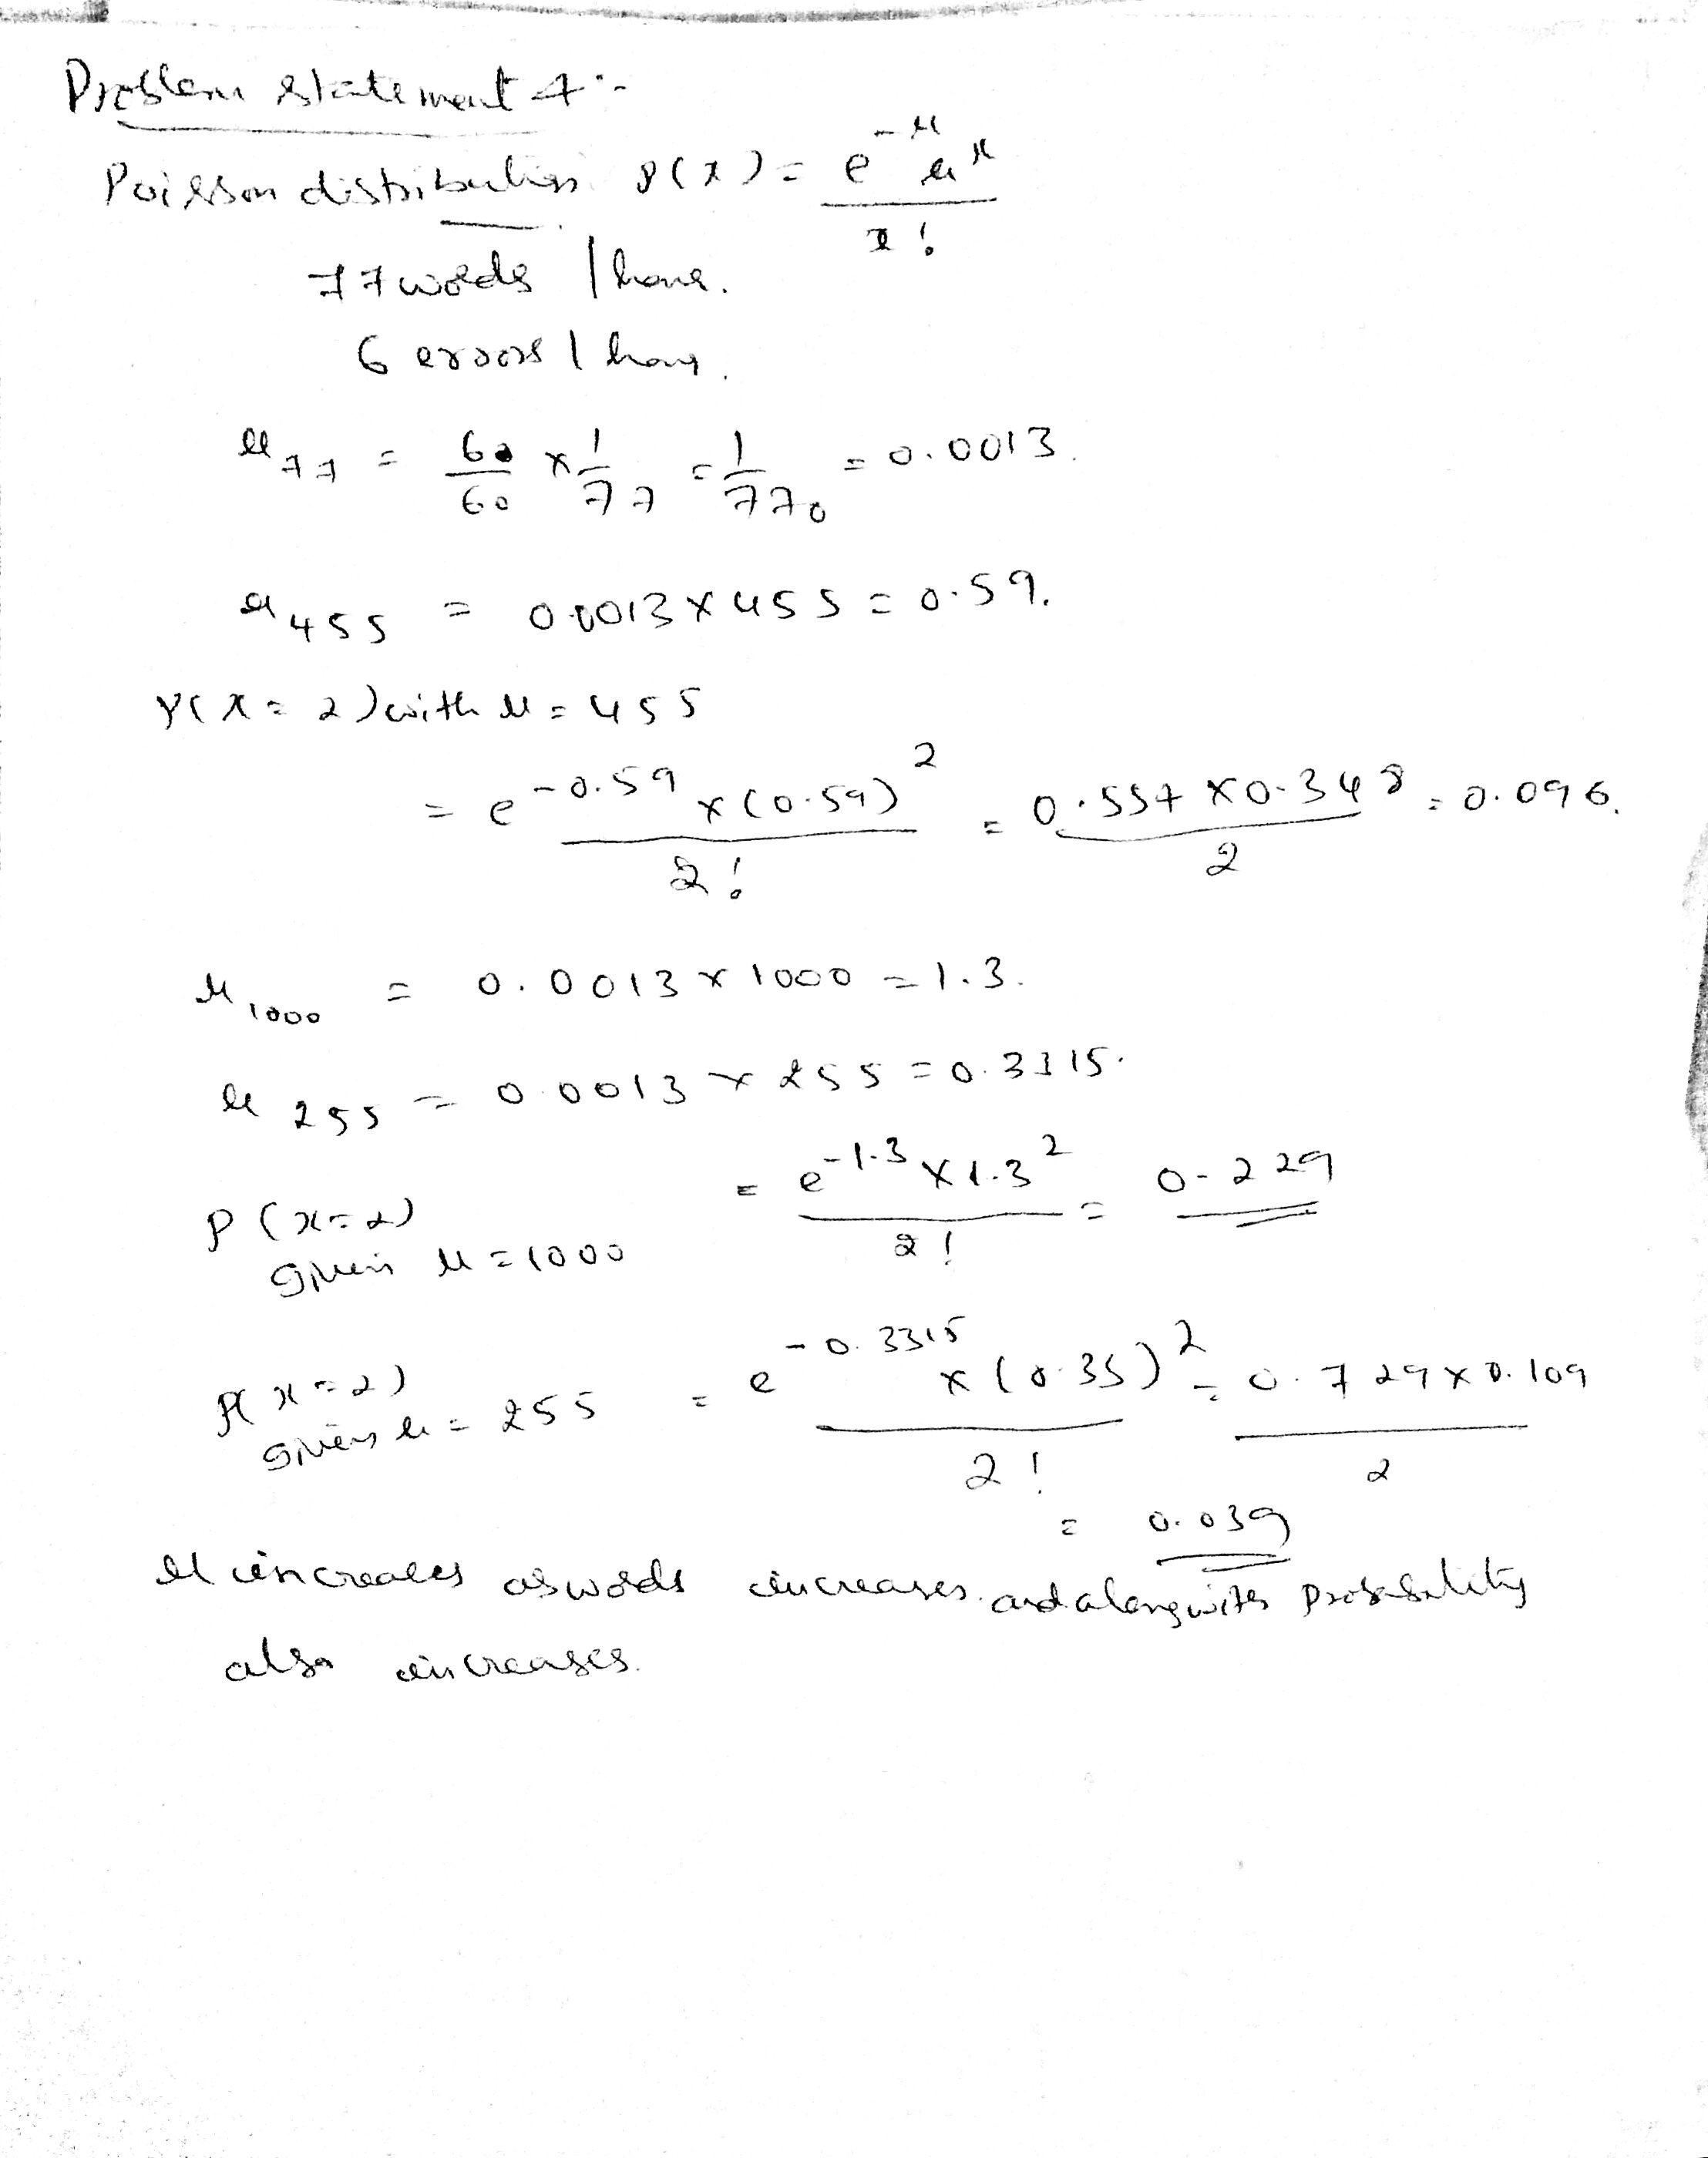 Problem statement 4:-
Poisson distribution p(x) = e^-μ μ^x / x!
77 words / hour.
6 errors / hour.
μ 77 = 60/60 × 1/77 = 1/770 = 0.0013.
μ 455 = 0.0013 × 455 = 0.59.
P(x = 2) with μ = 455
= e^-0.59 × (0.59)^2 / 2! = 0.557 × 0.348 / 2 = 0.096.
μ 1000 = 0.0013 × 1000 = 1.3.
μ 255 = 0.0013 × 255 = 0.3315.
P (x = 2) given μ = 1000 = e^-1.3 × 1.3^2 / 2! = 0.229
P(x = 2) given μ = 255 = e^-0.3315 × (0.35)^2 / 2! = 0.729 × 0.109 / 2
= 0.039
μ increases as words increases. and along with probability
also increases.